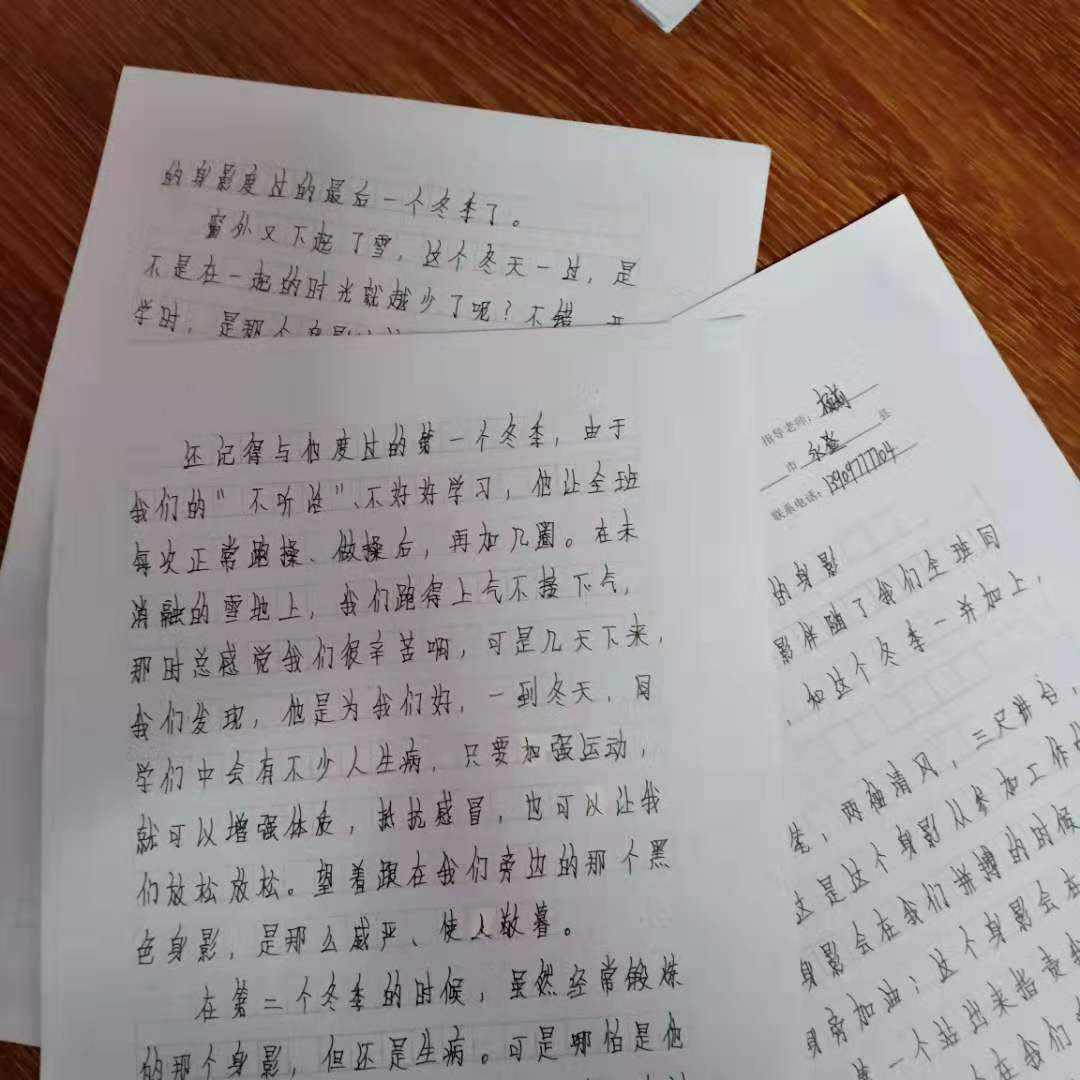 的身影度过的最后一个冬季了。
窗外又下起了雪，这个冬天一过，是
不是在一起的时光就越少了呢？不错
学时，是那个身影
还记得与他度过的第一个冬季，由于
我们的“不听话”、不好好学习，他让全班
每次正常跑操、做操后，再加几圈。在未
消融的雪地上，我们跑得上气不接下气，
那时总感觉我们很辛苦啊，可是几天下来，
我们发现，他是为我们好，一到冬天，同
学们中会有不少人生病，只要加强运动，
就可以增强体质，抵抗感冒，也可以让我
们放松放松。望着跟在我们旁边的那个黑
色身影，是那么威严、使人敬暮。
在第二个冬季的时候，虽然经常锻炼
的那个身影，但还是生病。可是哪怕是他
指导老师：
市 永登 县
联系电话：
的身影
影伴随了我们全班同
，和这个冬季一并加上，
笔，两袖清风，三尺讲台，
这是这个身影从参加工作
身影会在我们拼搏的时候
身旁加油；这个身影会在
第一个站出来指责我
在我们